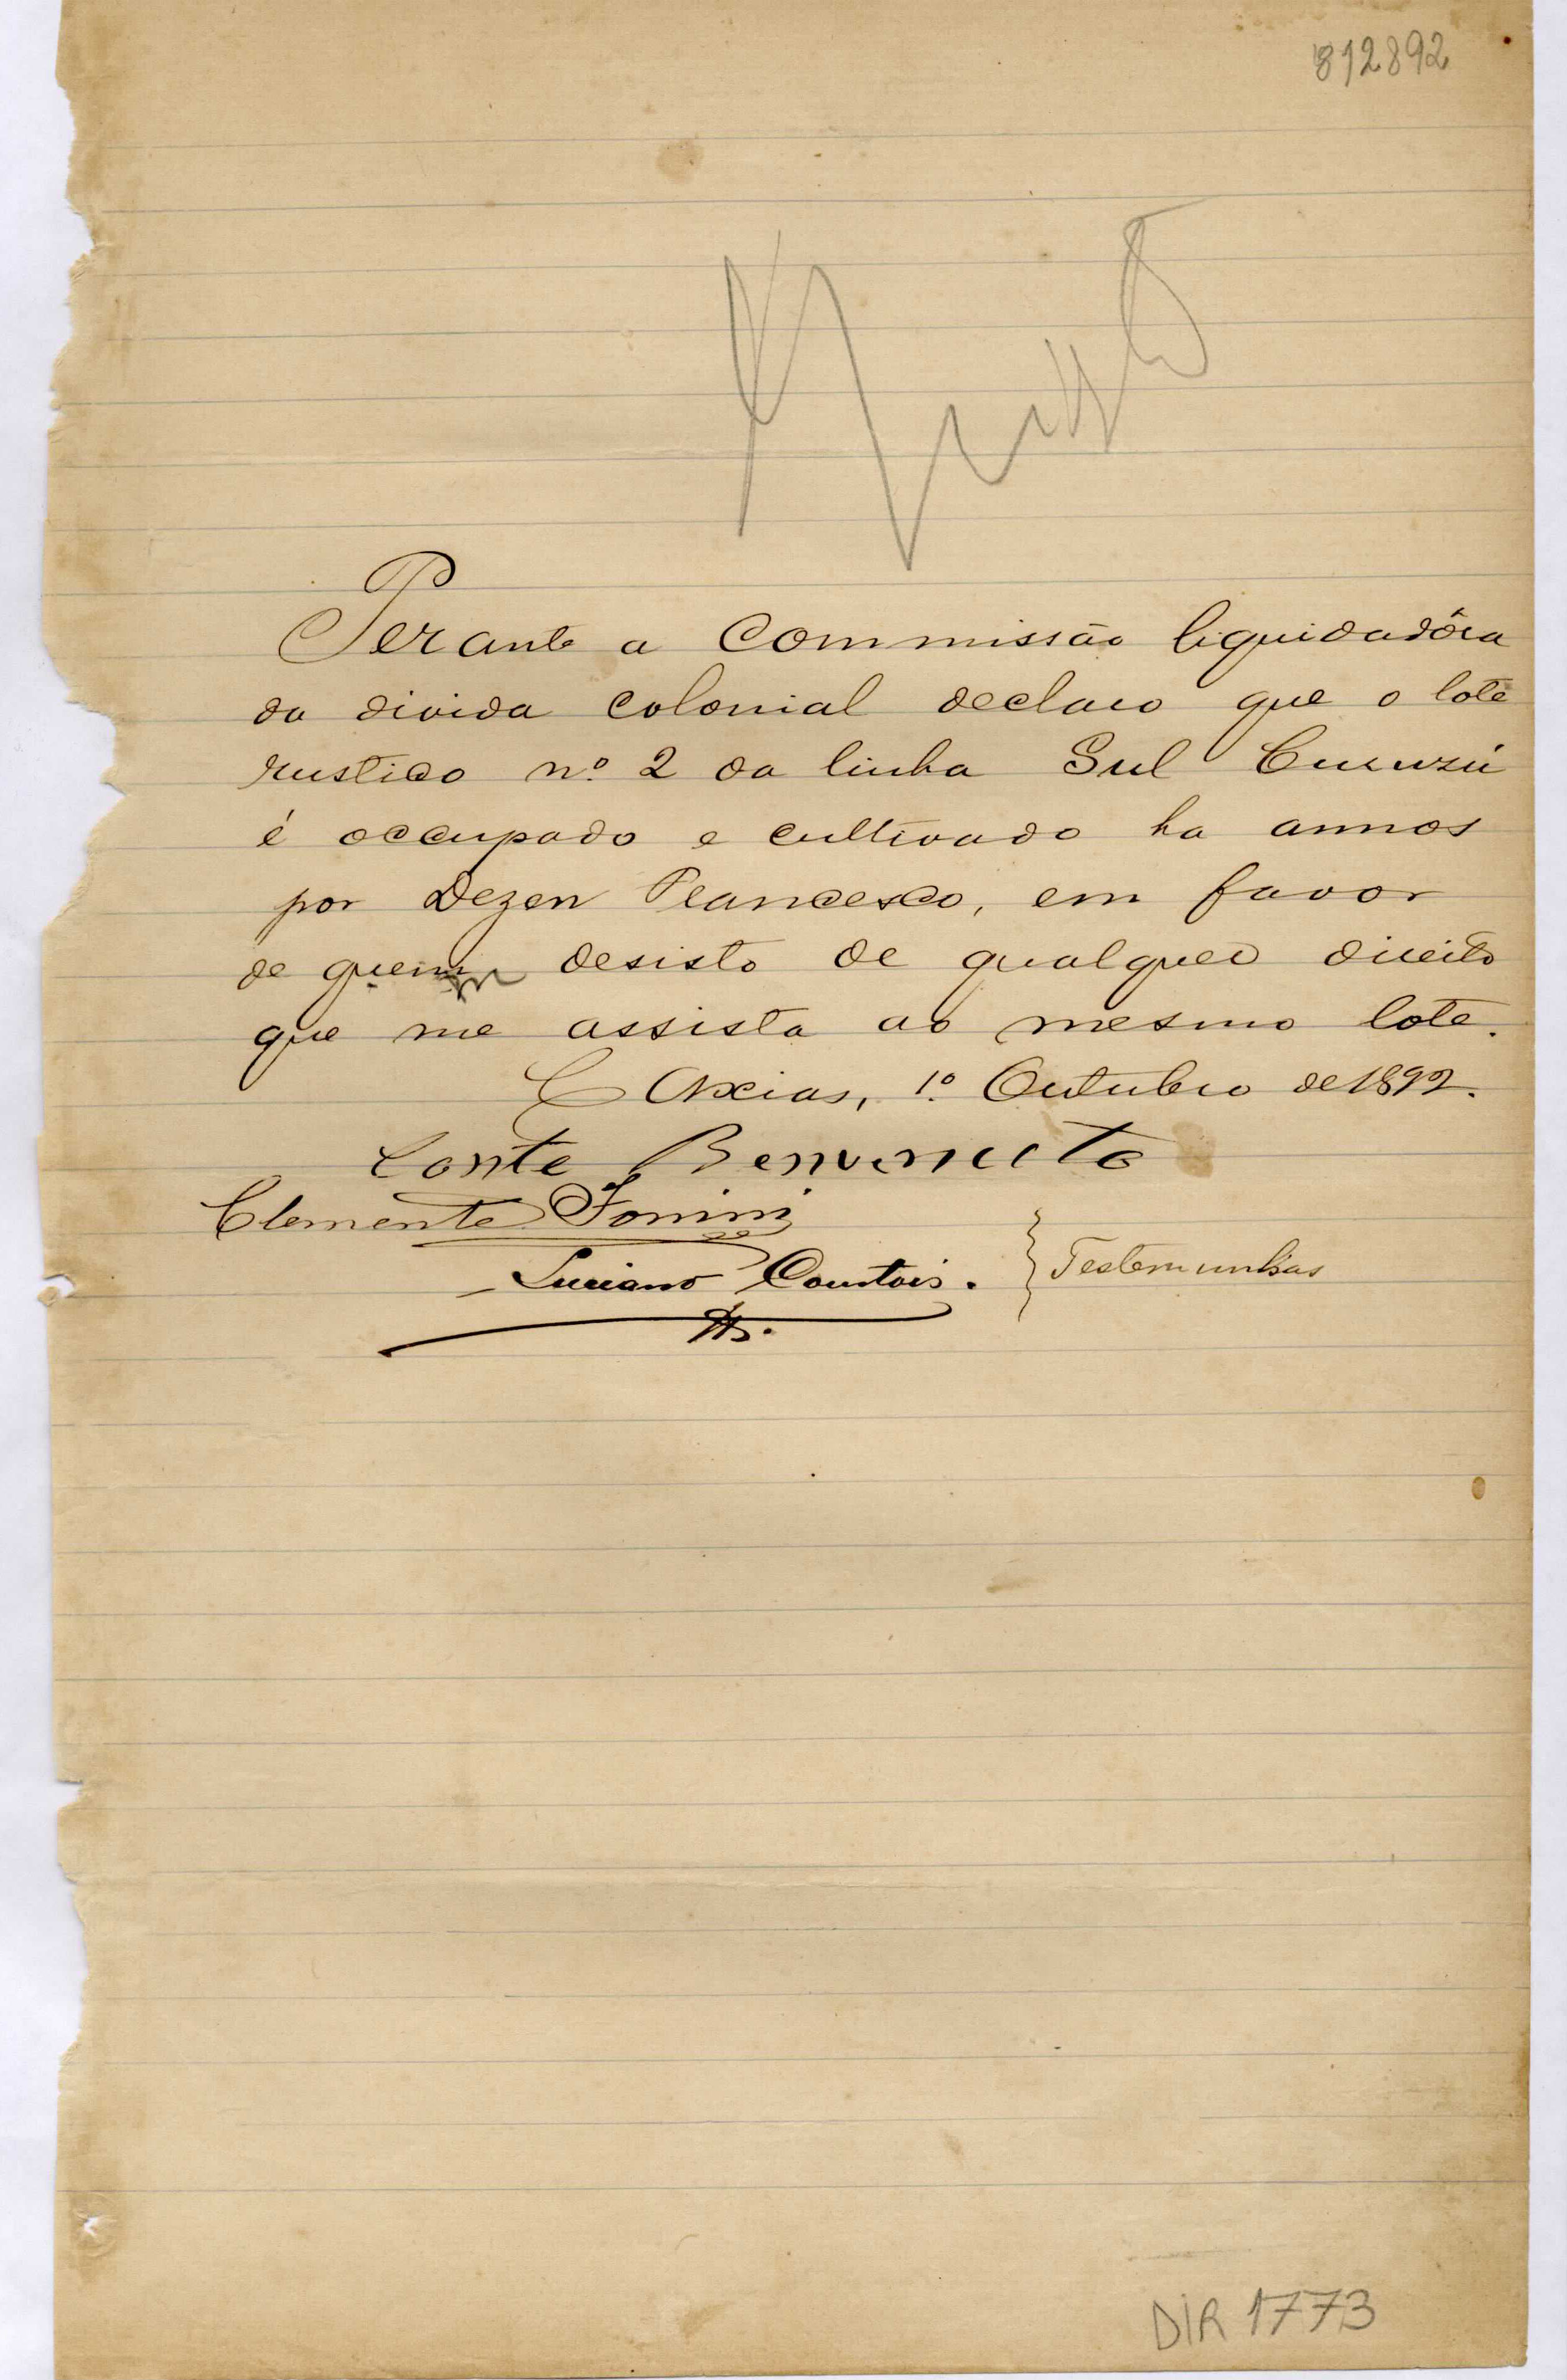 812892
Perante a Commissão liquidadôra
da divida colonial declaro que o lote
rustico nº 2 da linha Sul Curuzú
é occupado e cultivado ha annos
por Dezen Francesco, em favor
de quem desisto de qualquer direito
que me assista ao mesmo lote.
Caxias, 1º Outubro de 1892.
Conte Benvenuto
Clemente Fonini
Luciano Courtois.
Testemunhas
DIR 1773